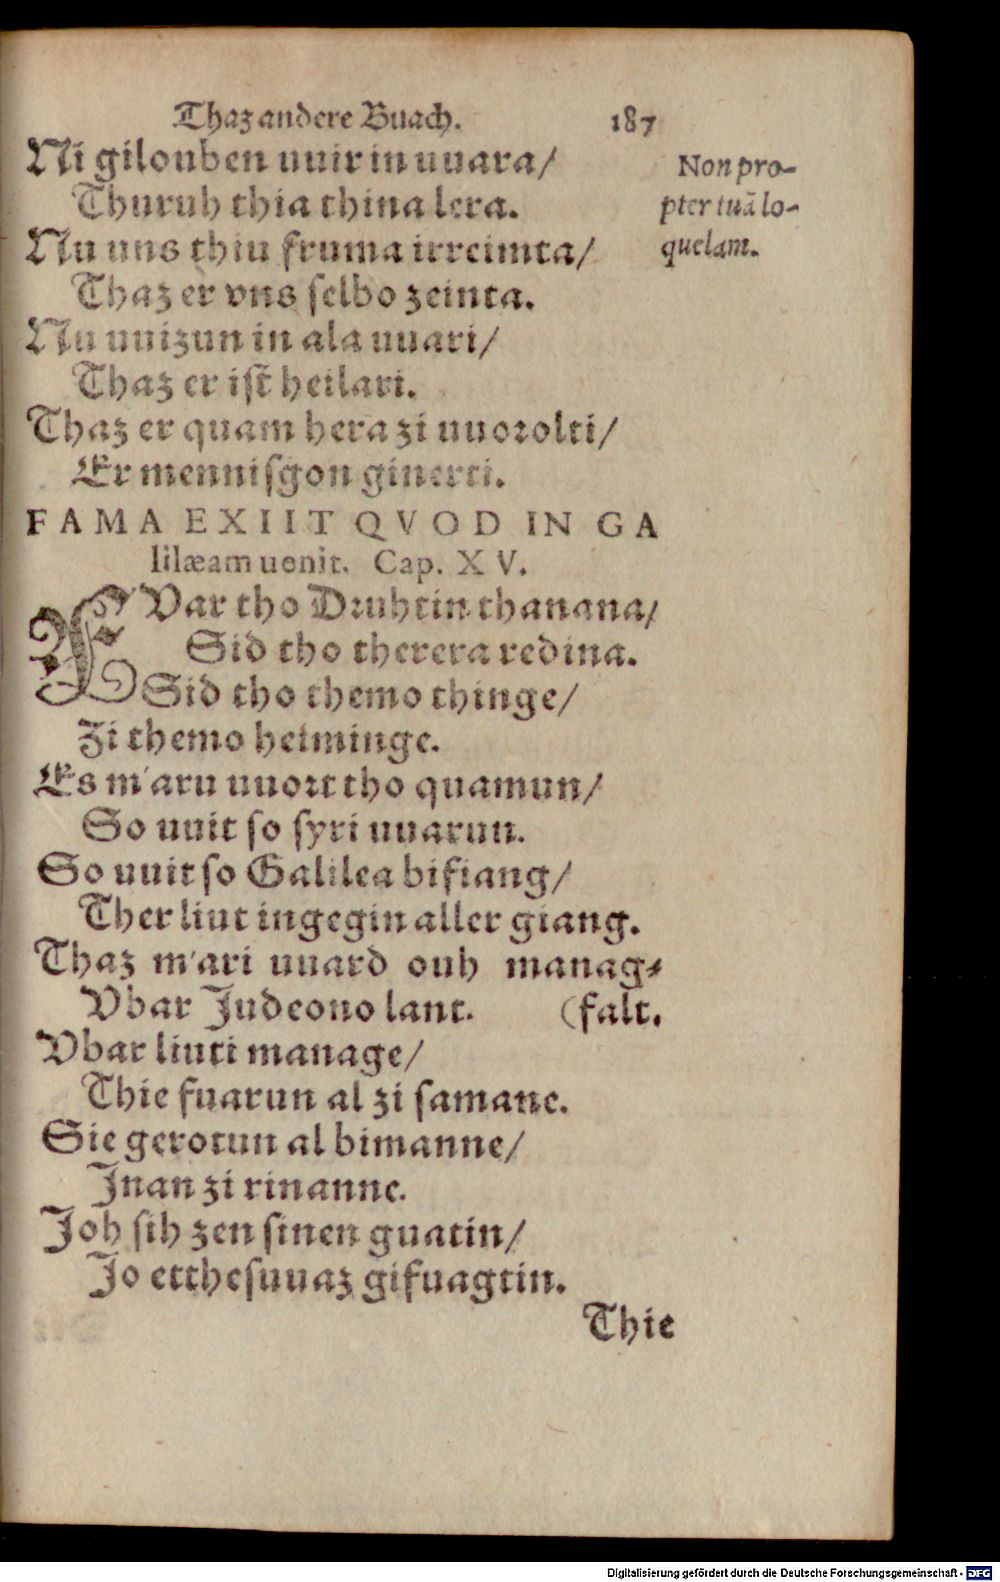 Thaz andere Buach. 187
Ni gilouben uuir in uuara/
Thuruh thia thina lera.
Nu uns thiu fruma irreimta/
Thaz er vns selbo zeinta.
Nu uuizun in ala uuari/
Thaz er ist heilari.
Thaz er quam hera zi uuorolti/
Er mennisgon ginerti.
Non pro-
pter tuā lo-
quelam.
FAMA EXIIT QVOD IN GA
lilæam uenit. Cap. XV.
FVar tho Druhtin thanana/
Sid tho therera redina.
Sid tho themo thinge/
Zi themo heiminge.
Es m'aru uuort tho quamun/
So uuit so syri uuarun.
So uuit so Galilea bifiang/
Ther liut ingegin aller giang.
Thaz m'ari uuard ouh manag-
Vbar Judeono lant. (falt.
Vbar liuti manage/
Thie fuarun al zi samane.
Sie gerotun al bimanne/
Jnan zi rinanne.
Joh sih zen sinen guatin/
Jo etthesuuaz gifuagtin.
Thie
Digitalisierung gefördert durch die Deutsche Forschungsgemeinschaft - DFG